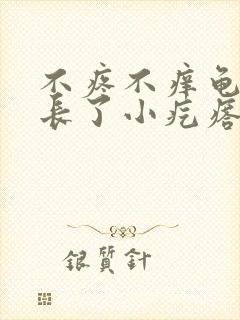 不疼不痒龟
長了小疙瘩
銀質針